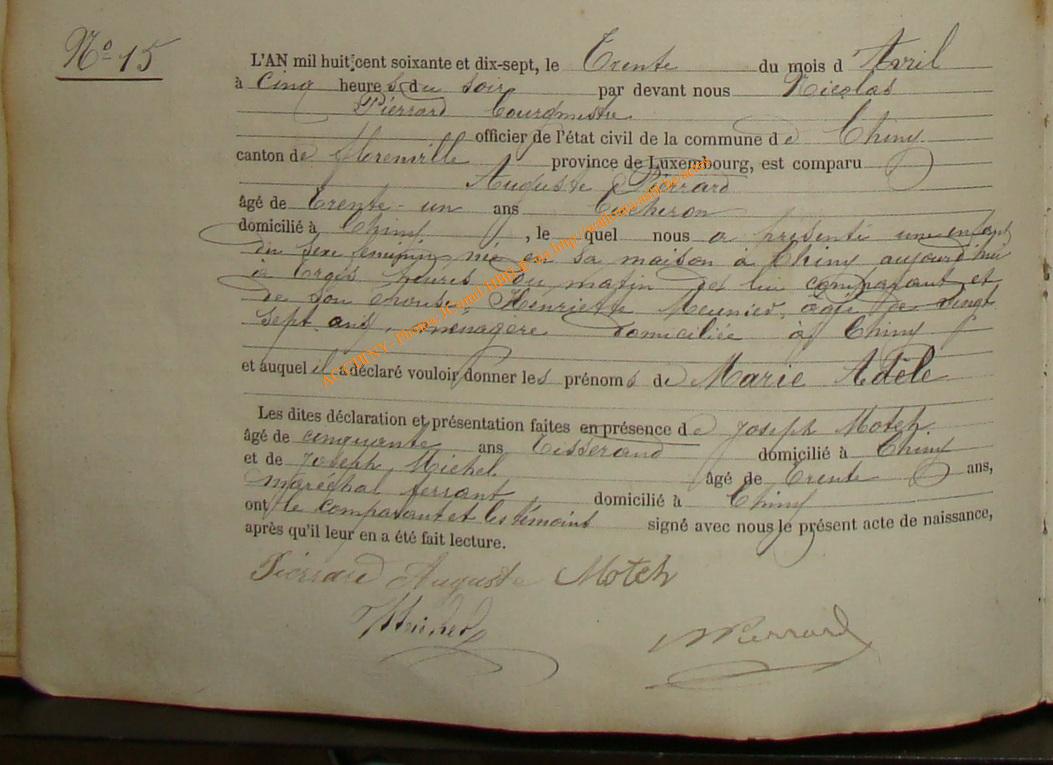 N° 15
L'AN mil huit cent soixante et dix-sept, le Trente du mois d'Avril
à cinq heures du soir par devant nous Nicolas
Pierrard Bourgmestre
officier de l'état civil de la commune de Chiny
canton de florenville province de Luxembourg, est comparu
Auguste Pierrard
âgé de Trente-un ans Bucheron
domicilié à Chiny, lequel nous a présenté une enfant
du sexe feminin, né en sa maison à Chiny aujourd'hui
à Trois heures du matin de lui comparant et
de son épouse Henriette Meunier, âgée de vingt
sept ans, ménagère domiciliée à Chiny
et auquel il a déclaré vouloir donner les prénoms de Marie Adèle
Les dites déclaration et présentation faites en présence de Joseph Motch
âgé de cinquante ans Tisserand domicilié à Chiny
et de Joseph Michel âgé de Trente ans,
maréchal ferrant domicilié à Chiny
ont le comparant et les témoins signé avec nous le présent acte de naissance,
après qu'il leur en a été fait lecture.
Pierrard Auguste Motch
Michel NPierrard